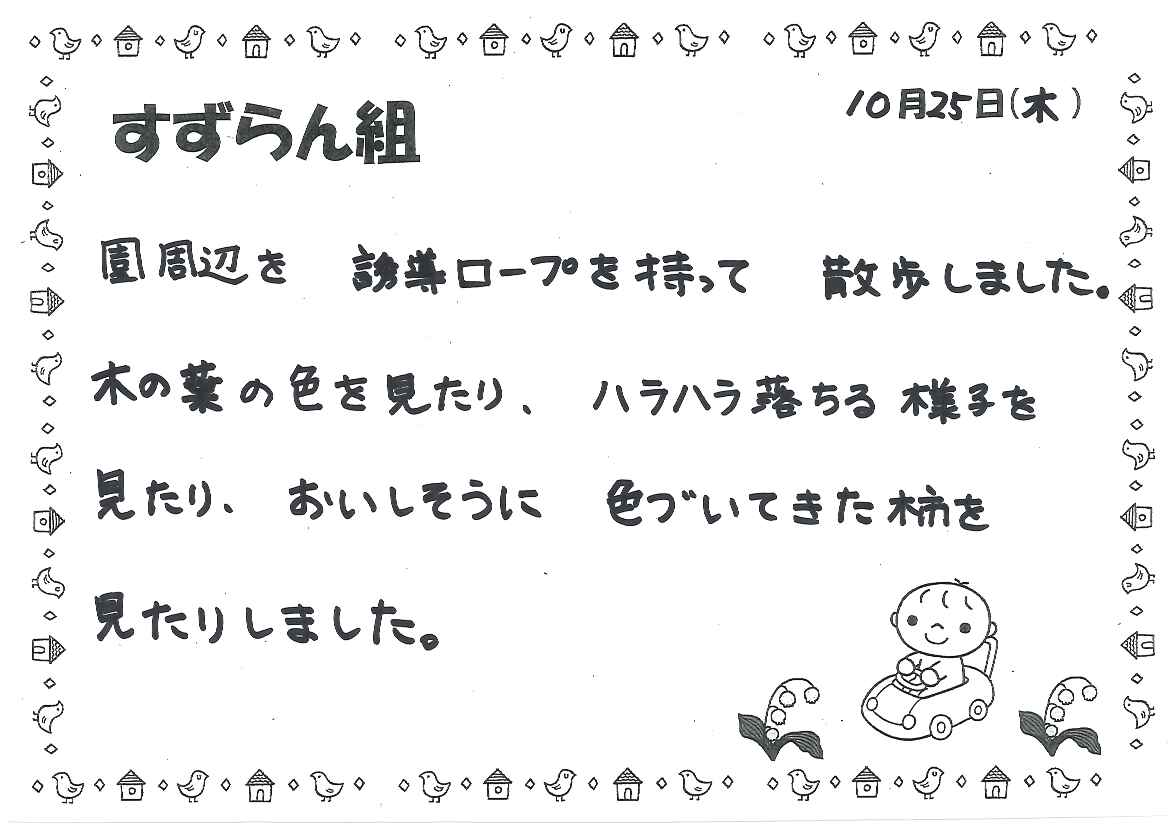 すずらん組
10月25日(木)
園周辺を 誘導ロープを持って 散歩しました。
木の葉の色を見たり、 ハラハラ落ちる様子を
見たり、 おいしそうに 色づいてきた柿を
見たりしました。